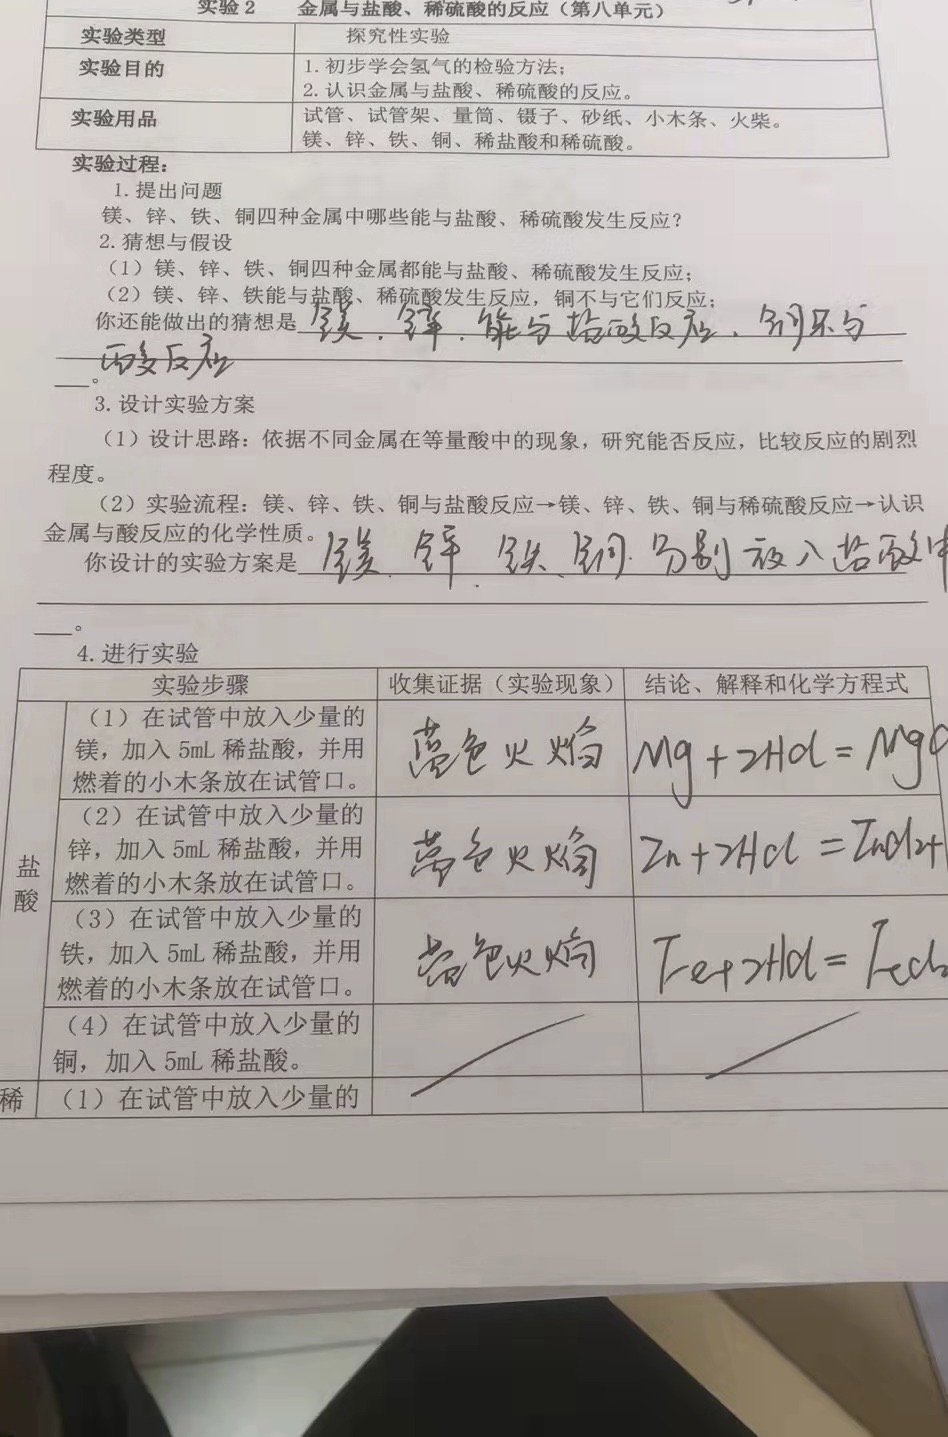 实验2 金属与盐酸、稀硫酸的反应（第八单元）
实验类型 探究性实验
实验目的 1.初步学会氢气的检验方法；
2.认识金属与盐酸、稀硫酸的反应。
实验用品 试管、试管架、量筒、镊子、砂纸、小木条、火柴。
镁、锌、铁、铜、稀盐酸和稀硫酸。
实验过程：
1.提出问题
镁、锌、铁、铜四种金属中哪些能与盐酸、稀硫酸发生反应？
2.猜想与假设
（1）镁、锌、铁、铜四种金属都能与盐酸、稀硫酸发生反应；
（2）镁、锌、铁能与盐酸、稀硫酸发生反应，铜不与它们反应；
你还能做出的猜想是 镁、锌、能与盐酸反应、铜不与
酸反应
。
3.设计实验方案
（1）设计思路：依据不同金属在等量酸中的现象，研究能否反应，比较反应的剧烈
程度。
（2）实验流程：镁、锌、铁、铜与盐酸反应→镁、锌、铁、铜与稀硫酸反应→认识
金属与酸反应的化学性质。
你设计的实验方案是 镁、锌、铁、铜.分别放入盐酸中
。
4.进行实验
实验步骤 收集证据（实验现象） 结论、解释和化学方程式
盐酸
（1）在试管中放入少量的
镁，加入5mL稀盐酸，并用
燃着的小木条放在试管口。
蓝色火焰 Mg+2HCl=MgC
（2）在试管中放入少量的
锌，加入5mL稀盐酸，并用
燃着的小木条放在试管口。
蓝色火焰 Zn+2HCl=ZnCl2+
（3）在试管中放入少量的
铁，加入5mL稀盐酸，并用
燃着的小木条放在试管口。
蓝色火焰 Fe+2HCl=FeCl2
（4）在试管中放入少量的
铜，加入5mL稀盐酸。
稀 （1）在试管中放入少量的